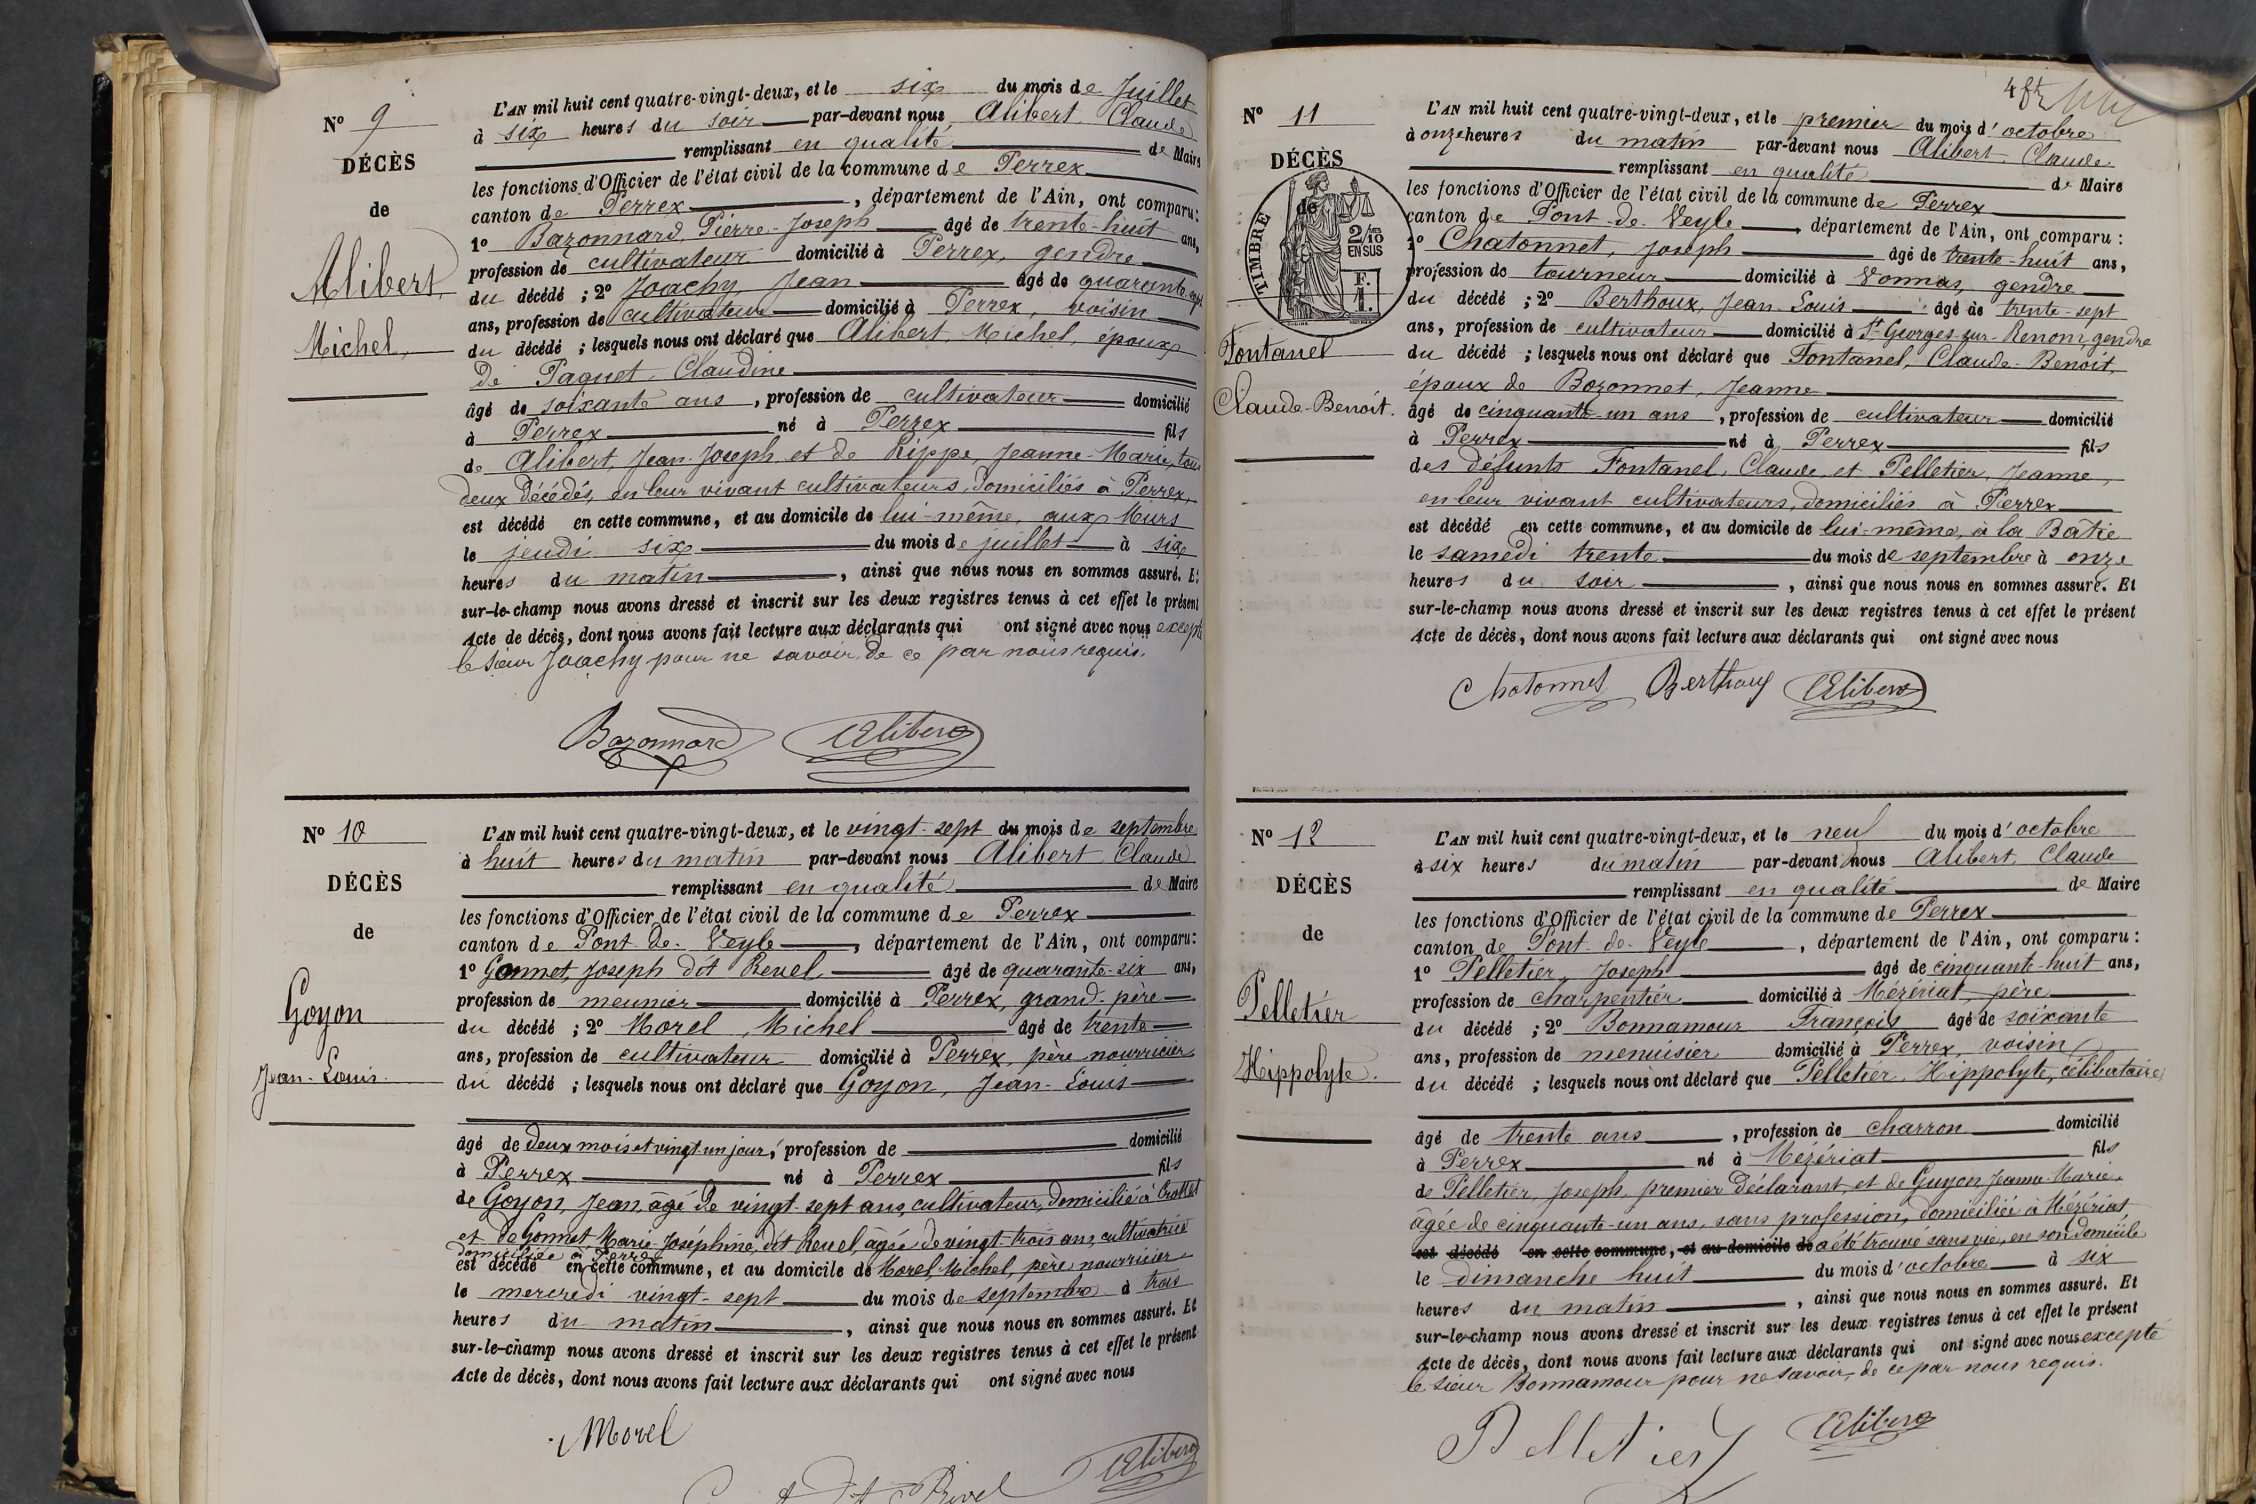 N° 9
DÉCÈS
de
Alibert,
Michel,
L'AN mil huit cent quatre-vingt-deux, et le six du mois de Juillet
à six heures du soir par-devant nous Alibert Claude
remplissant en qualité de Maire
les fonctions d'Officier de l'état civil de la commune de Perrex
canton de Perrex, département de l'Ain, ont comparu:
1° Bazonnard, Pierre-Joseph âgé de trente-huit ans,
profession de cultivateur domicilié à Perrex, gendre
du décédé ; 2° Joachy Jean âgé de quarante-sept
ans, profession de cultivateur domicilié à Perrex, voisin
du décédé ; lesquels nous ont déclaré que Alibert, Michel, époux
de Paquet, Claudine
âgé de soixante ans, profession de cultivateur domicilié
à Perrex né à Perrex fils
de Alibert, Jean-Joseph et de Rippe, Jeanne-Marie, tous
deux décédés, en leur vivant cultivateurs, domiciliés à Perrex,
est décédé en cette commune, et au domicile de lui-même, aux Murs
le jeudi six du mois de juillet à six
heures du matin, ainsi que nous nous en sommes assuré. Et
sur-le-champ nous avons dressé et inscrit sur les deux registres tenus à cet effet le présent
Acte de décès, dont nous avons fait lecture aux déclarants qui ont signé avec nous excepté
le sieur Joachy pour ne savoir, de ce par nous requis.
Bazonnard Alibert
N° 10
DÉCÈS
de
Goyon
Jean-Louis.
L'AN mil huit cent quatre-vingt-deux, et le vingt-sept du mois de septembre
à huit heures du matin par-devant nous Alibert Claude
remplissant en qualité de Maire
les fonctions d'Officier de l'état civil de la commune de Perrex
canton de Pont-de-Veyle, département de l'Ain, ont comparu:
1° Gonnet, Joseph dit Revel âgé de quarante-six ans,
profession de meunier domicilié à Perrex, grand-père
du décédé ; 2° Morel, Michel âgé de trente
ans, profession de cultivateur domicilié à Perrex, père nourricier
du décédé ; lesquels nous ont déclaré que Goyon, Jean-Louis
âgé de deux mois et vingt un jour, profession de domicilié
à Perrex né à Perrex fils
de Goyon, Jean, âgé de vingt-sept ans, cultivateur, domicilié à Crottet
et de Gonnet, Marie-Joséphine, dit Revel, âgée de vingt-trois ans, cultivatrice
domiciliée à Perrex
est décédé en cette commune, et au domicile de Morel, Michel, père nourricier
le mercredi vingt-sept du mois de septembre à trois
heures du matin, ainsi que nous nous en sommes assuré. Et
sur-le-champ nous avons dressé et inscrit sur les deux registres tenus à cet effet le présent
Acte de décès, dont nous avons fait lecture aux déclarants qui ont signé avec nous
Morel
Alibert
N° 11
DÉCÈS
de
TIMBRE
2/10
EN SUS
F.
1.
Fontanel
Claude-Benoit.
L'AN mil huit cent quatre-vingt-deux, et le premier du mois d'octobre
à onze heures du matin par-devant nous Alibert, Claude
remplissant en qualité de Maire
les fonctions d'Officier de l'état civil de la commune de Perrex
canton de Pont-de-Veyle, département de l'Ain, ont comparu :
1° Chatonnet, Joseph âgé de trente-huit ans,
profession de tourneur domicilié à Vonnas, gendre
du décédé ; 2° Berthoux, Jean-Louis âgé de trente-sept
ans, profession de cultivateur domicilié à St Georges-sur-Renom, gendre
du décédé ; lesquels nous ont déclaré que Fontanel, Claude-Benoit,
époux de Bozonnet, Jeanne
âgé de cinquante-un ans, profession de cultivateur domicilié
à Perrex né à Perrex fils
des défunts Fontanel, Claude, et Pelletier, Jeanne,
en leur vivant cultivateurs, domiciliés à Perrex
est décédé en cette commune, et au domicile de lui-même, à la Batie
le samedi trente du mois de septembre à onze
heures du soir, ainsi que nous nous en sommes assuré. Et
sur-le-champ nous avons dressé et inscrit sur les deux registres tenus à cet effet le présent
Acte de décès, dont nous avons fait lecture aux déclarants qui ont signé avec nous
Chatonnet Berthoux Alibert
N° 12
DÉCÈS
de
Pelletier
Hippolyte.
L'AN mil huit cent quatre-vingt-deux, et le neuf du mois d'octobre
à six heures du matin par-devant nous Alibert, Claude
remplissant en qualité de Maire
les fonctions d'Officier de l'état civil de la commune de Perrex
canton de Pont-de-Veyle, département de l'Ain, ont comparu :
1° Pelletier, Joseph âgé de cinquante-huit ans,
profession de charpentier domicilié à Mézériat, père
du décédé ; 2° Bonnamour François âgé de soixante
ans, profession de menuisier domicilié à Perrex, voisin
du décédé ; lesquels nous ont déclaré que Pelletier, Hippolyte, célibataire,
âgé de trente ans, profession de charron domicilié
à Perrex né à Mézériat fils
de Pelletier, Joseph, premier déclarant, et de Guyon Jeanne-Marie,
âgée de cinquante-un ans, sans profession, domiciliée à Mézériat,
est décédé en cette commune, et au domicile de a été trouvé sans vie, en son domicile
le dimanche huit du mois d'octobre à six
heures du matin, ainsi que nous nous en sommes assuré. Et
sur-le-champ nous avons dressé et inscrit sur les deux registres tenus à cet effet le présent
Acte de décès, dont nous avons fait lecture aux déclarants qui ont signé avec nous excepté
le sieur Bonnamour pour ne savoir, de ce par nous requis.
Pelletier Alibert